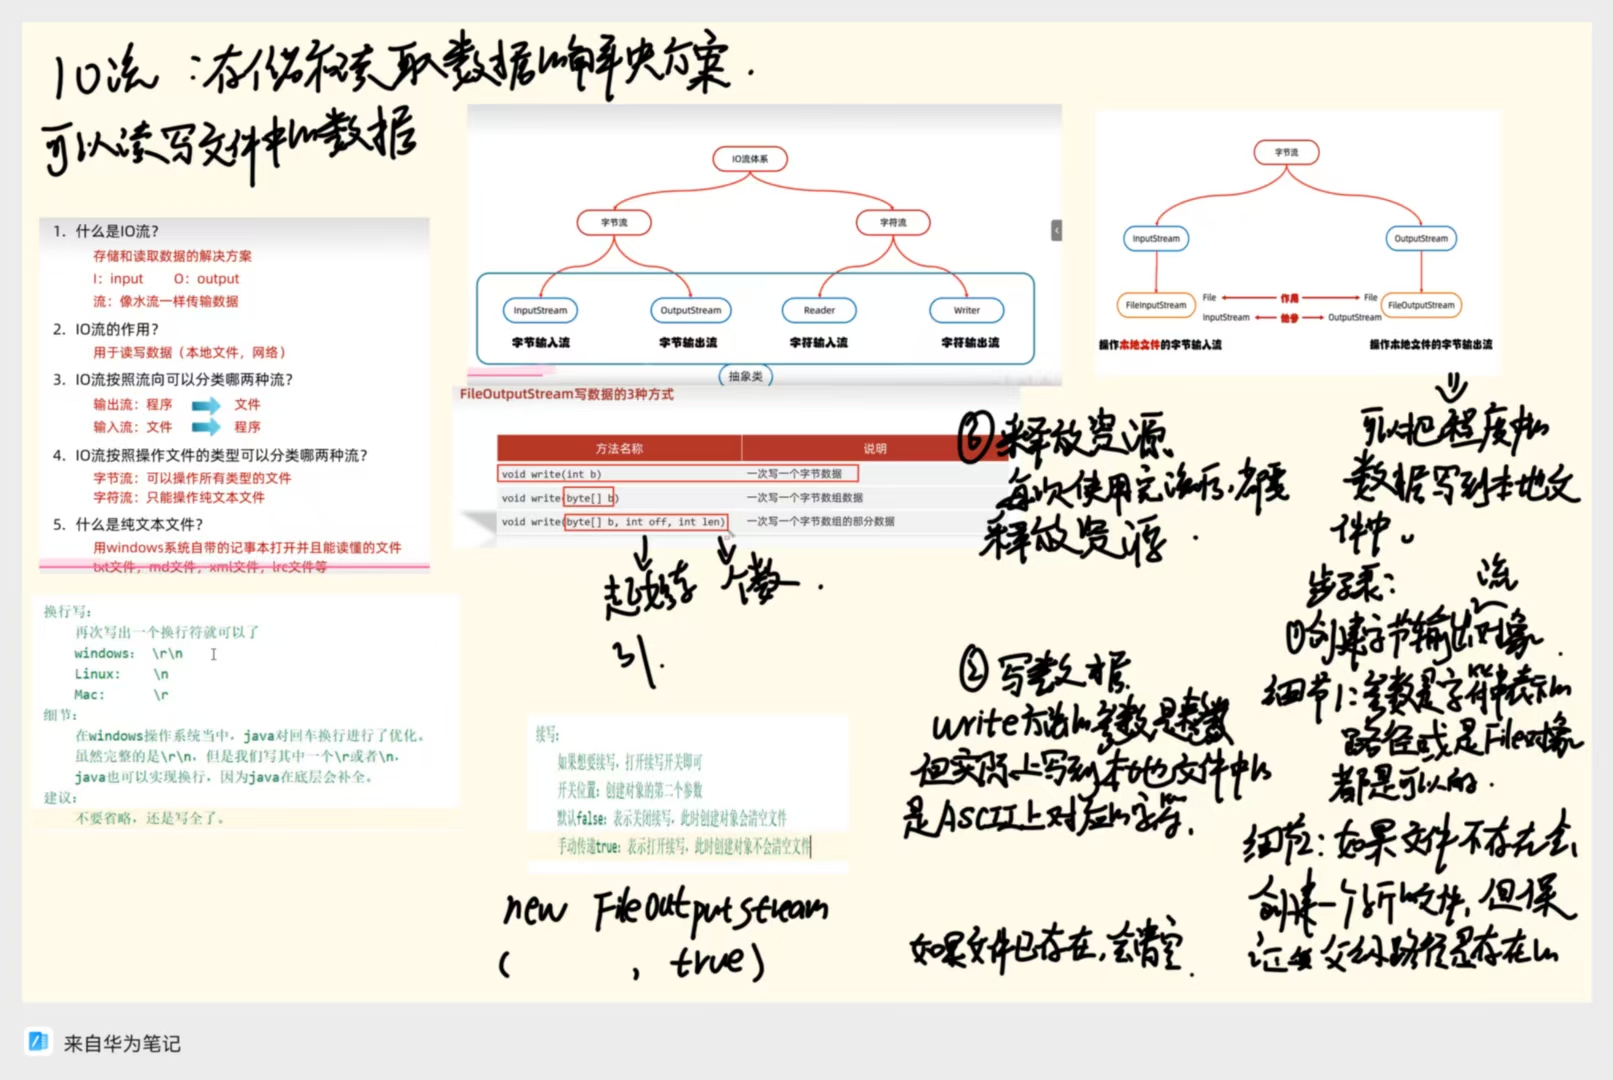 IO流：存储和读取数据的解决方案.
可以读写文件中的数据
1. 什么是IO流？
存储和读取数据的解决方案
I：input O：output
流：像水流一样传输数据
2. IO流的作用？
用于读写数据（本地文件，网络）
3. IO流按照流向可以分类哪两种流？
输出流：程序 文件
输入流：文件 程序
4. IO流按照操作文件的类型可以分类哪两种流？
字节流：可以操作所有类型的文件
字符流：只能操作纯文本文件
5. 什么是纯文本文件？
用windows系统自带的记事本打开并且能读懂的文件
txt文件，md文件，xml文件，lrc文件等
换行写：
再次写出一个换行符就可以了
windows： \r\n
Linux： \n
Mac： \r
细节：
在windows操作系统当中，java对回车换行进行了优化。
虽然完整的是\r\n，但是我们写其中一个\r或者\n，
java也可以实现换行，因为java在底层会补全。
建议：
不要省略，还是写全了。
IO流体系
字节流 字符流
InputStream OutputStream Reader Writer
字节输入流 字节输出流 字符输入流 字符输出流
抽象类
FileOutputStream写数据的3种方式
方法名称 说明
void write(int b) 一次写一个字节数据
void write(byte[] b) 一次写一个字节数组数据
void write(byte[] b, int off, int len) 一次写一个字节数组的部分数据
起始索引 个数.
续写：
如果想要续写，打开续写开关即可
开关位置：创建对象的第二个参数
默认false：表示关闭续写，此时创建对象会清空文件
手动传递true：表示打开续写，此时创建对象不会清空文件
new FileOutputStream
( , true)
字节流
InputStream OutputStream
FileInputStream File 作用 File FileOutputStream
InputStream 继承 OutputStream
操作本地文件的字节输入流 操作本地文件的字节输出流
可以把程序中的
数据写到本地文
件中。
步骤：
①创建字节输出流对象.
细节1：参数是字符串表示的
路径或是File对象
都是可以的.
细节2：如果文件不存在会
创建一个新的文件，但保
证父级路径是存在的
如果文件已存在，会清空.
②写数据
write方法的参数是整数
但实际上写到本地文件中的
是ASCII上对应的字符.
③释放资源
每次使用完流后，都要
释放资源.